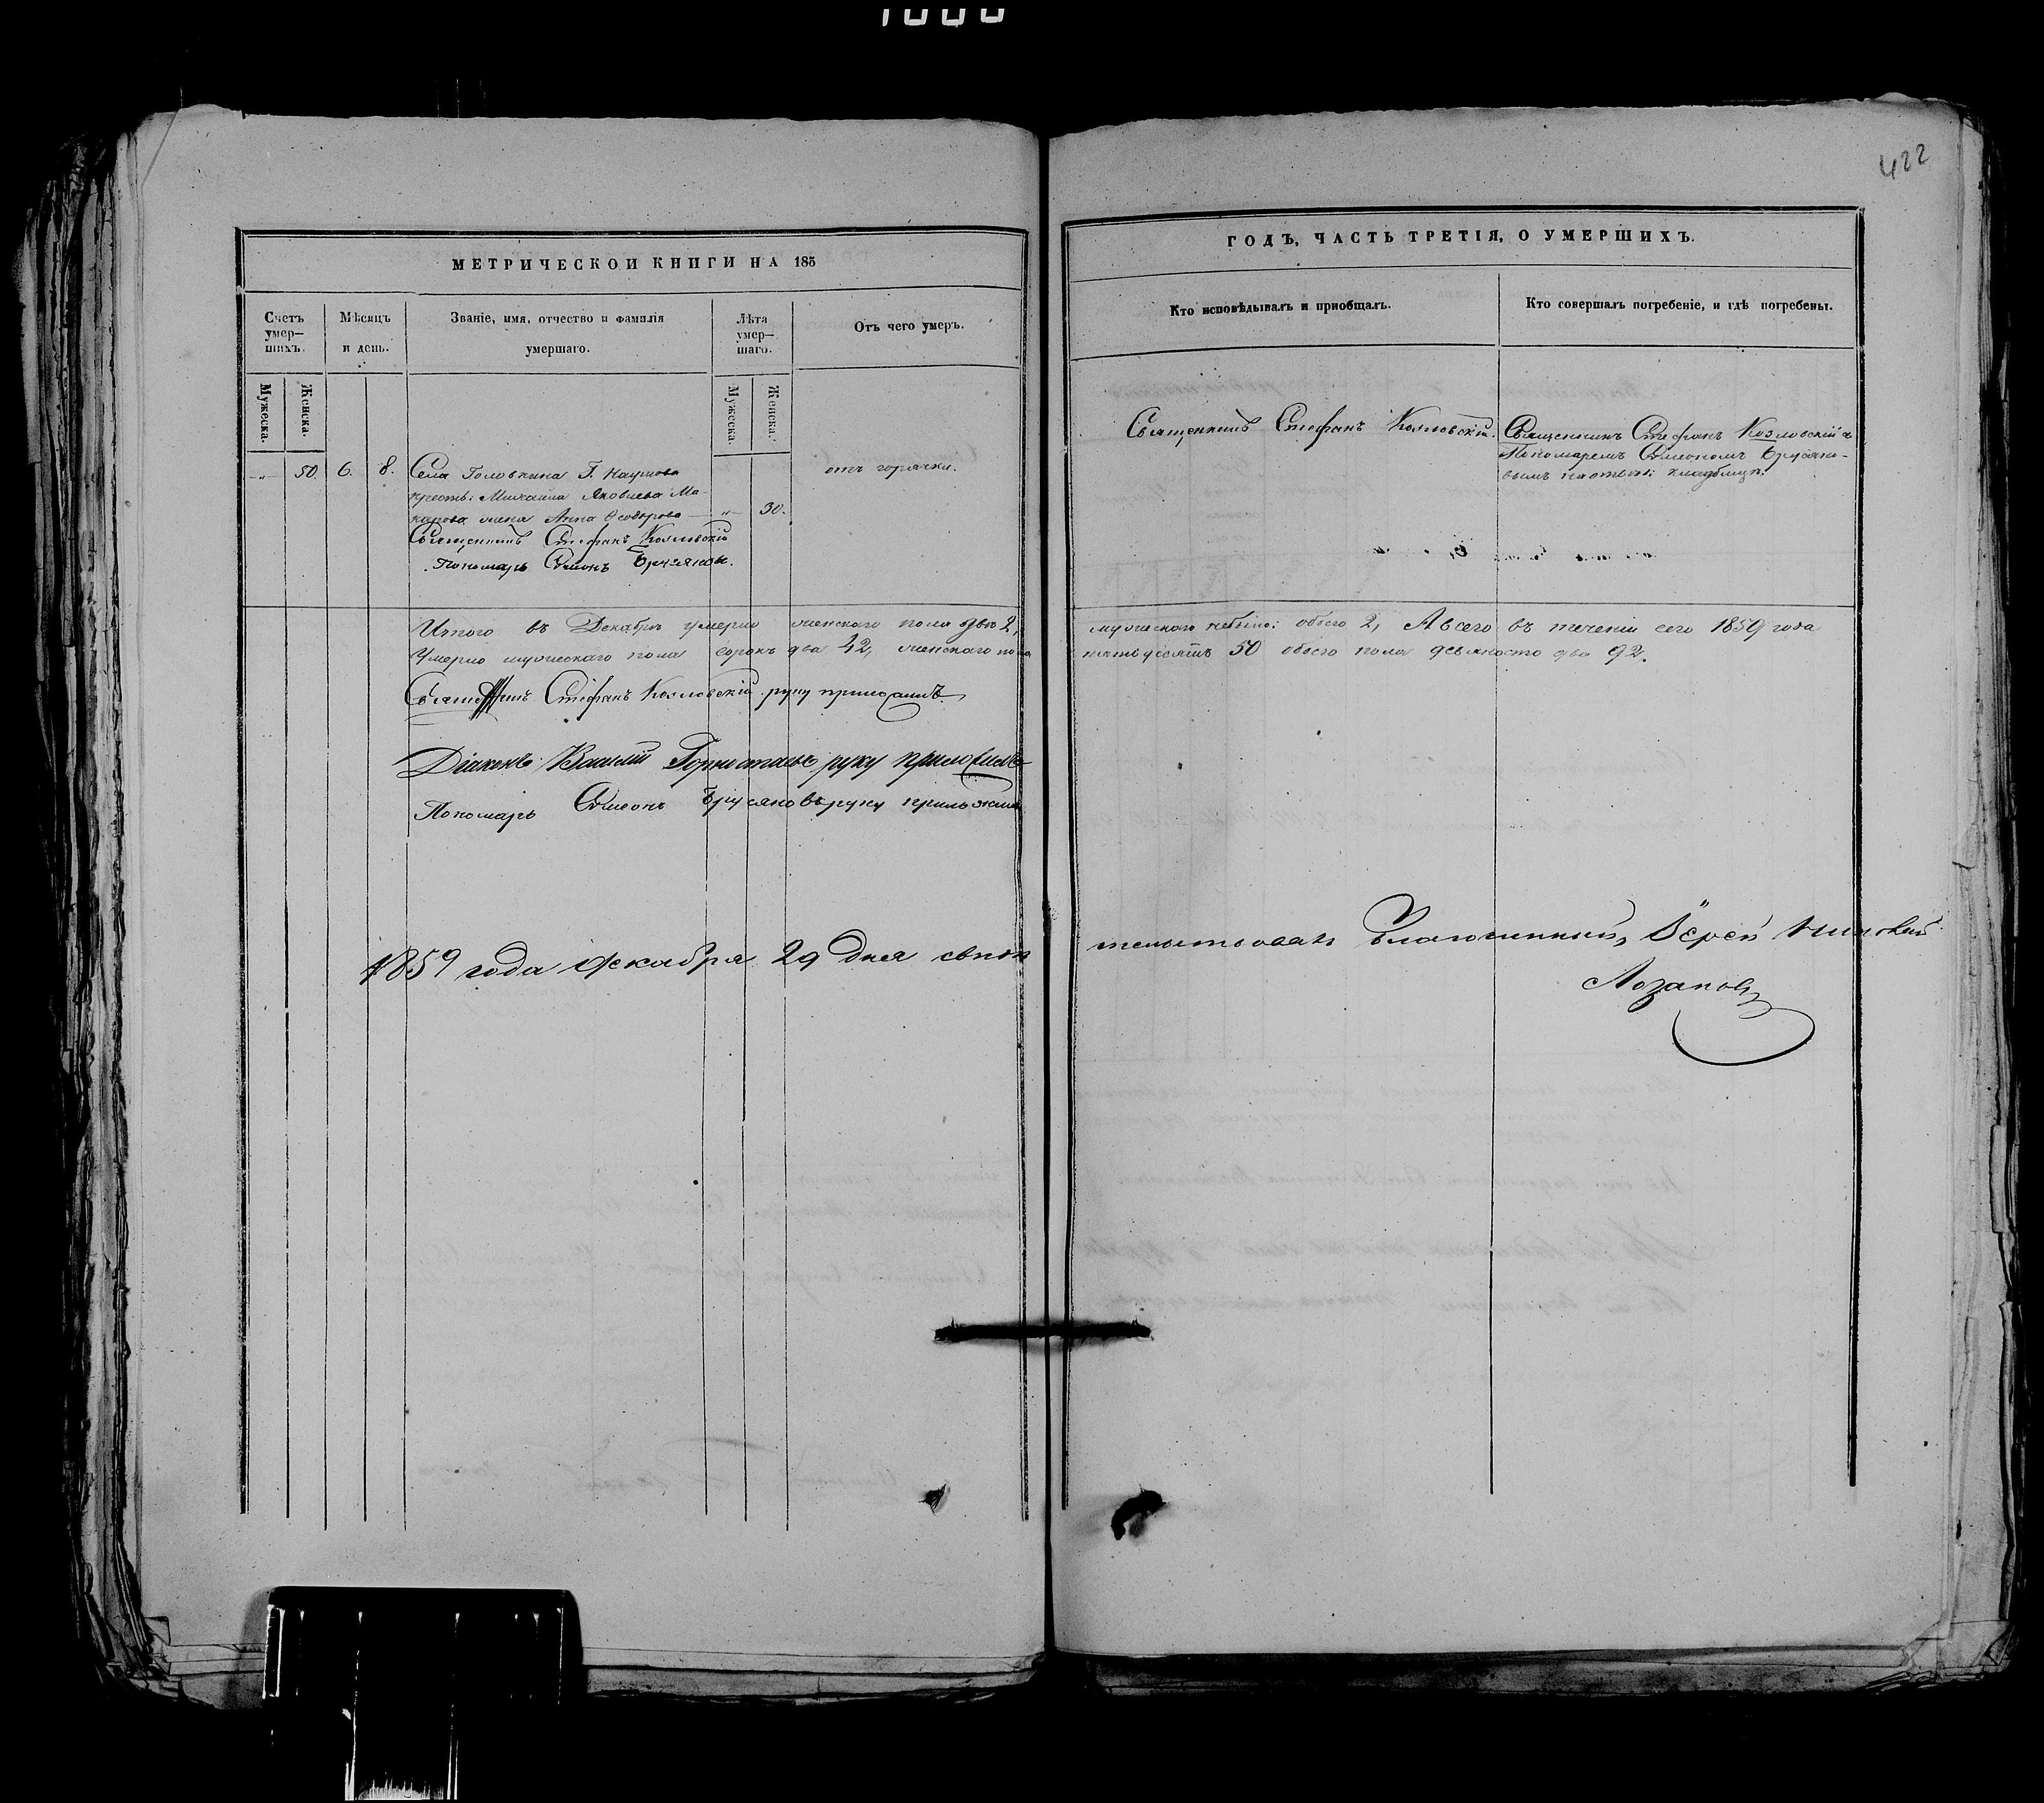 422
МЕТРИЧЕСКОЙ КНИГИ НА 185
ГОДЪ, ЧАСТЬ ТРЕТІЯ, О УМЕРШИХЪ.
Счетъ умер—шихъ.
Мѣсяцъ и день.
Званіе, имя, отчество и фамилія умершаго.
Лѣта умер—шаго.
Отъ чего умеръ.
Кто исповѣдывалъ и пріобщалъ.
Кто совершалъ погребеніе, и гдѣ погребены.
Мужеска.
Женска.
Мужеска.
Женска.
50. 6. 8. Села Головкина Г. Наумова
крест: Михаила Яковлева Ма-
карова жена Анна Ѳеодорова — 30.
отъ горячки.
Священникъ Стефанъ Козловскій
Пономарь Симеонъ Брусяновъ.
Священникъ Стефанъ Козловскій.
Священникъ Стефанъ Козловскій съ
Пономаремъ Симеономъ Брусяно-
вымъ на отвод: кладбищѣ.
Итого въ Декабрѣ умерло женскаго пола двѣ 2, мужескаго небыло: обоего 2, А всего въ теченіи сего 1859 года
умерло мужескаго пола сорокъ два 42, женскаго пола пятьдесятъ 50 обоего пола девяносто два 92.
Священникъ Стефанъ Козловскій руку приложилъ
Діаконъ Василій Горностаевъ руку приложилъ
Пономарь Симеонъ Брусяновъ руку приложилъ
1859 года Декабря 29 дня свидѣтельствовалъ Благочинный, Іерей
Лозановъ